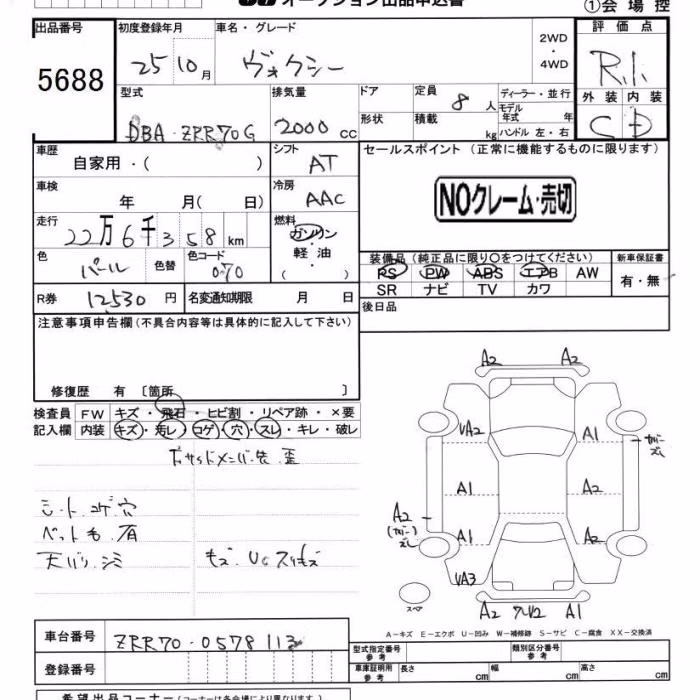 オークション出品申込書
①会場控
出品番号
5688
初度登録年月
25 10月
車名・グレード
ヴォクシー
2WD・4WD
評価点
R.1.
外装 内装
C D
型式
DBA-ZRR70G
排気量
2000 cc
ドア
形状
定員
8人
積載
kg
ディーラー・並行
モデル年式 年
ハンドル 左・右
車歴
自家用・( )
シフト
AT
車検
年 月( 日)
冷房
AAC
走行
22万6千358 km
燃料
ガソリン・軽油・( )
色
パール
色替
色コード
070
R券
12530 円
名変通知期限 月 日
セールスポイント(正常に機能するものに限ります)
NOクレーム・売切
装備品(純正品に限り○をつけてください)
PS PW ABS エアB AW
SR ナビ TV カワ
新車保証書
有・無
後日品
注意事項申告欄(不具合内容等は具体的に記入して下さい)
修復歴 有 〔箇所 〕
検査員記入欄
FW キズ・飛石・ヒビ割・リペア跡・×要
内装 キズ・汚レ・コゲ・穴・スレ・キレ・破レ
シート コゲ 穴
ペット毛 有
天バリ シミ
A2 A2
UA2 A1
A1 A2
A2
A1 A2
UA3
A2 A1
スペア
A-キズ E-エクボ U-凹み W-補修跡 S-サビ C-腐食 XX-交換済
車台番号
ZRR70-0578113
登録番号
型式指定番号 参考
類別区分番号 参考
車庫証明用 参考 長さ cm 幅 cm 高さ cm
希望出品コーナー(コーナーは各会場により異なります)